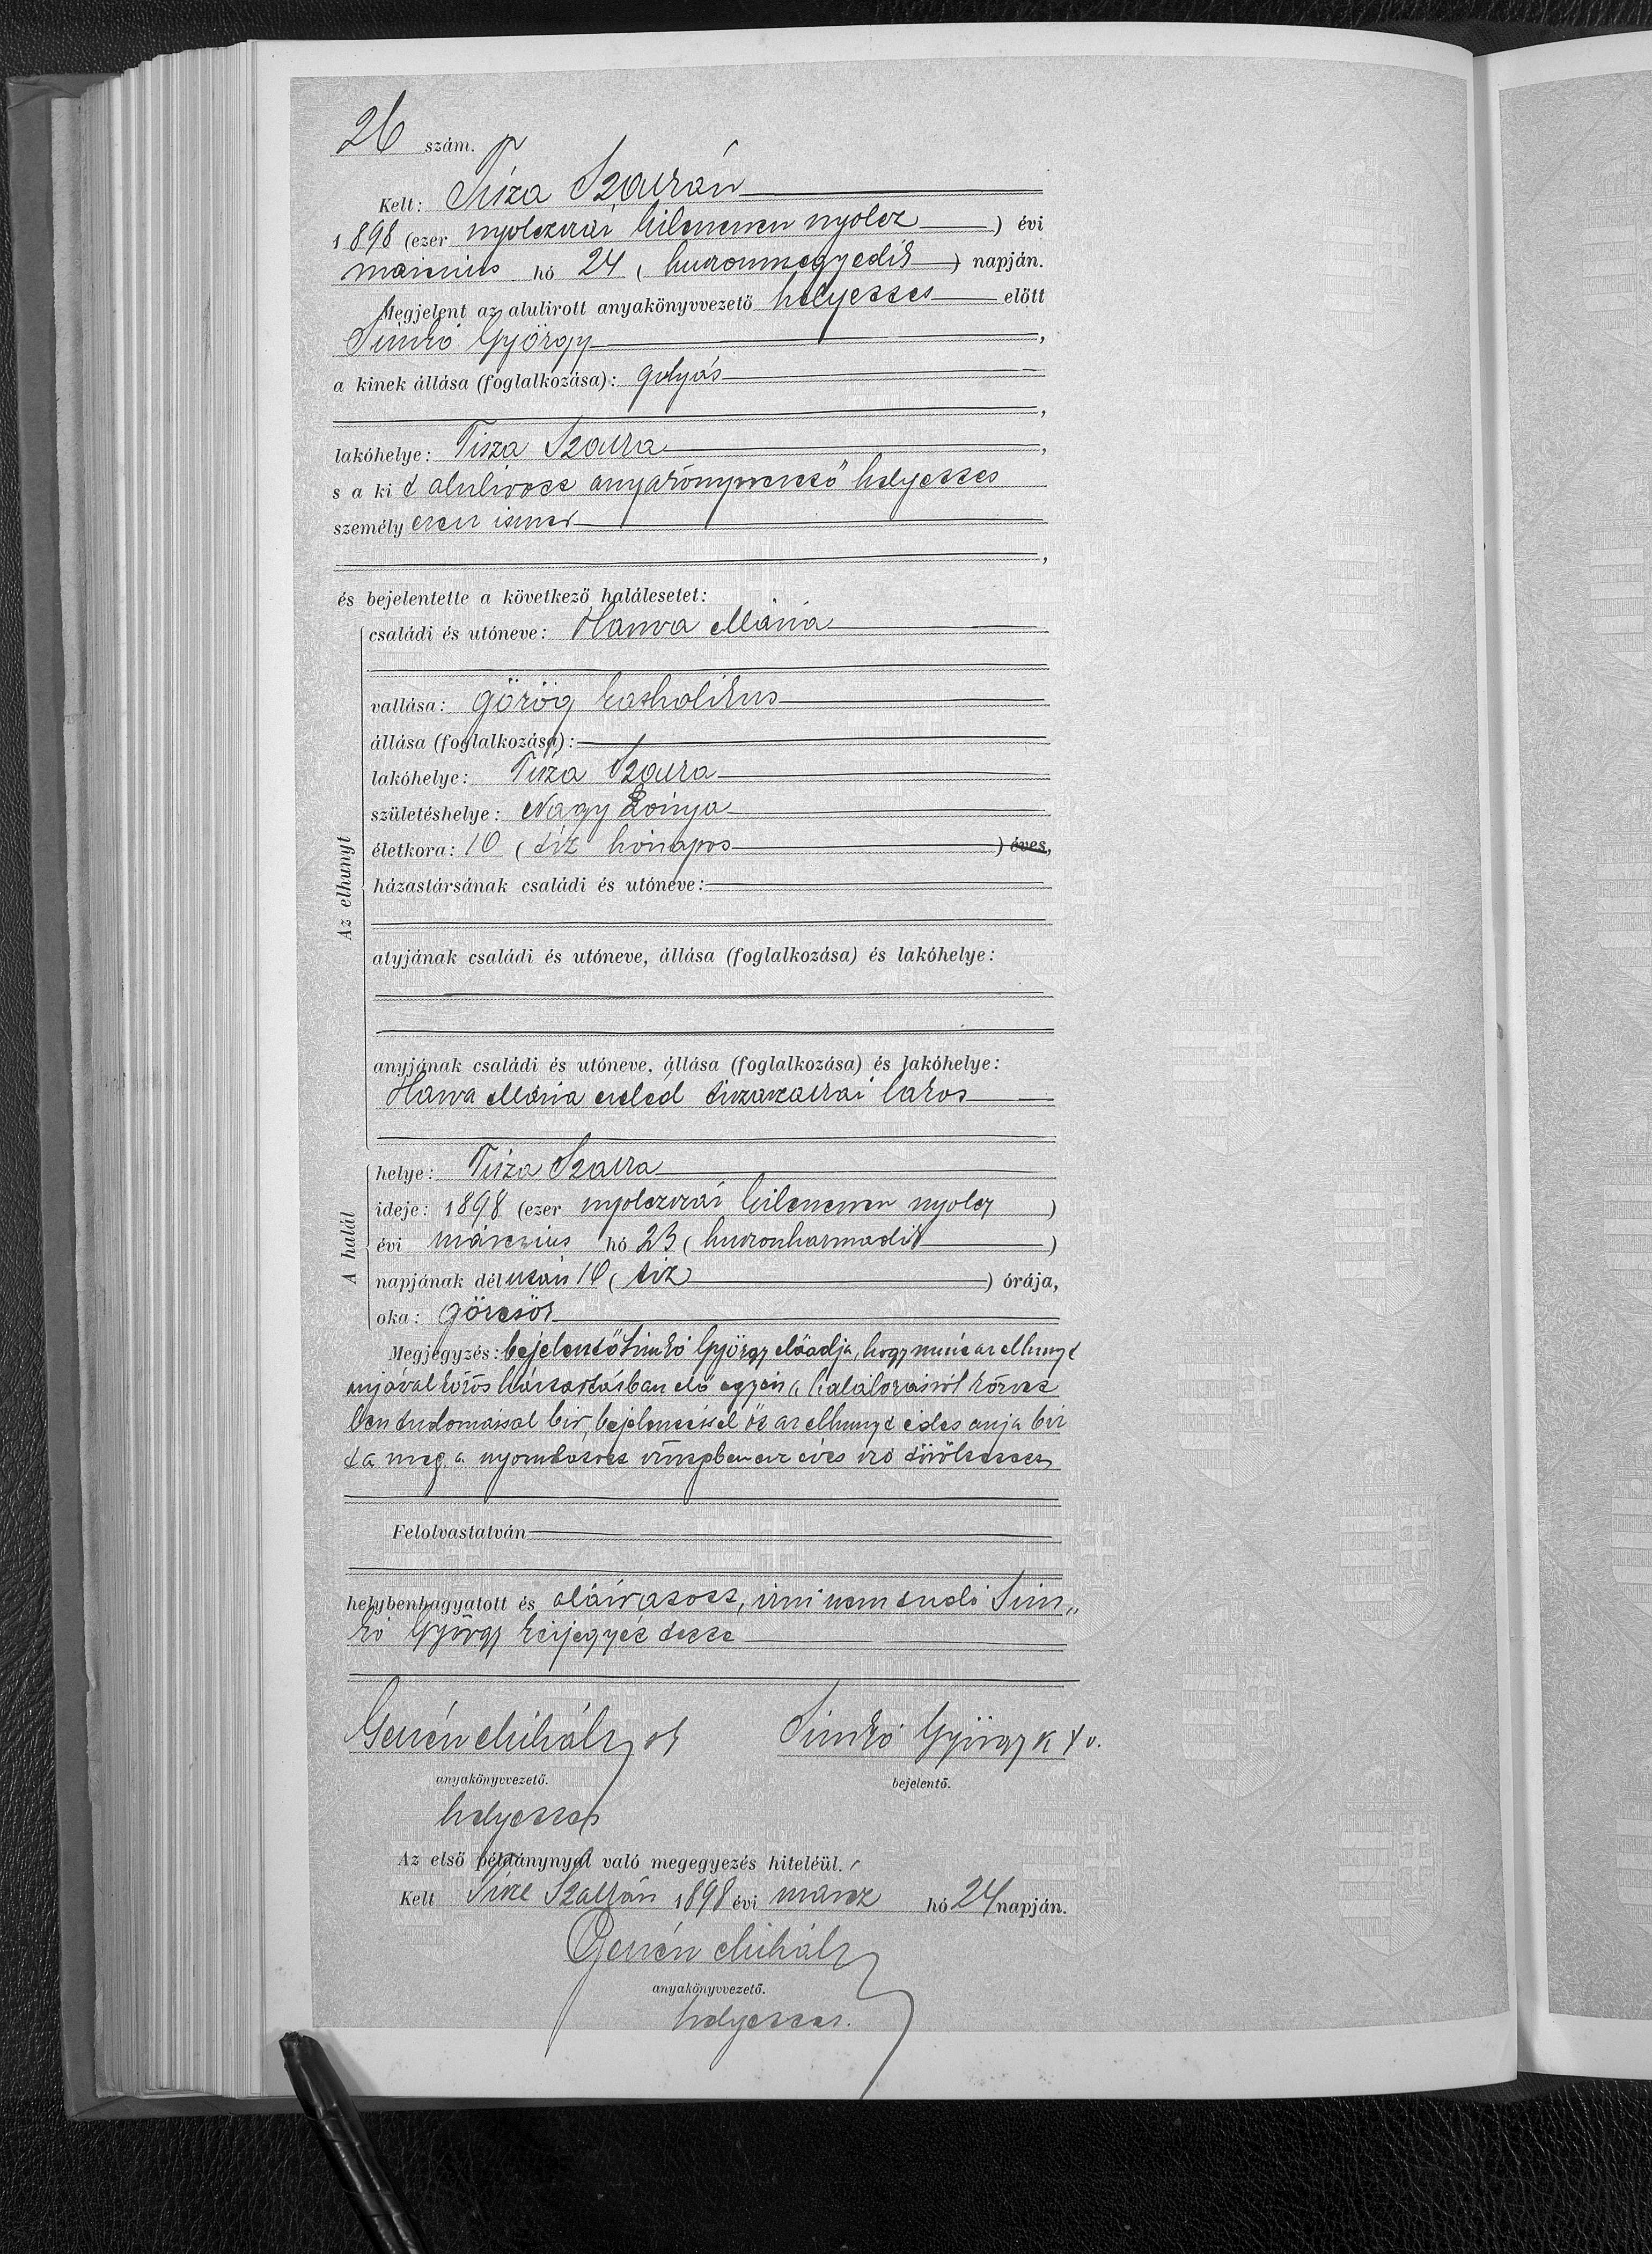 26 szám.
Kelt: Tisza Szalkán
1898 (ezer nyolczszáz kilenczven nyolcz) évi
márczius hó 24 (huszonnegyedik) napján.
Megjelent az alulirott anyakönyvvezető helyettes előtt
Simkó György,
a kinek állása (foglalkozása): gulyás
,
lakóhelye: Tisza Szalka,
s a ki t alulirott anyakönyvvezető helyettes
személyesen ismer
,
és bejelentette a következő halálesetet:
Az elhunyt
családi és utóneve: Hanva Mária
vallása: görög katholikus
állása (foglalkozása):
lakóhelye: Tisza Szalka
születéshelye: Nagy Lónya
életkora: 10 (tíz hónapos) éves,
házastársának családi és utóneve:
atyjának családi és utóneve, állása (foglalkozása) és lakóhelye:
anyjának családi és utóneve, állása (foglalkozása) és lakóhelye:
Hanva Mária cseléd tiszaszalkai lakos
A halál
helye: Tisza Szalka
ideje: 1898 (ezer nyolczszáz kilenczven nyolcz)
évi márczius hó 23 (huszonharmadik)
napjának délután 10 (tiz) órája,
oka: görcsök
Megjegyzés: bejelentő Simkó György előadja, hogy mint az elhunyt
anjával közös háztartásban élő egyén a halálozásról közvet
len tudomással bir, bejelentéssel őt az elhunyt édes anja biz
ta meg. a nyomtatott szövegben az éves szó töröltetett
Felolvastatván
helybenhagyatott és aláiratott, irni nem tudó Sim„
kó György kézjegyét tette
Gerzsén Mihály sk Simkó György k x v.
anyakönyvvezető. bejelentő.
helyettes
Az első példánynyal való megegyezés hiteléül.
Kelt Tisza Szalkán 1898 évi márcz hó 24 napján.
Gerzsén Mihály
anyakönyvvezető.
helyettes.